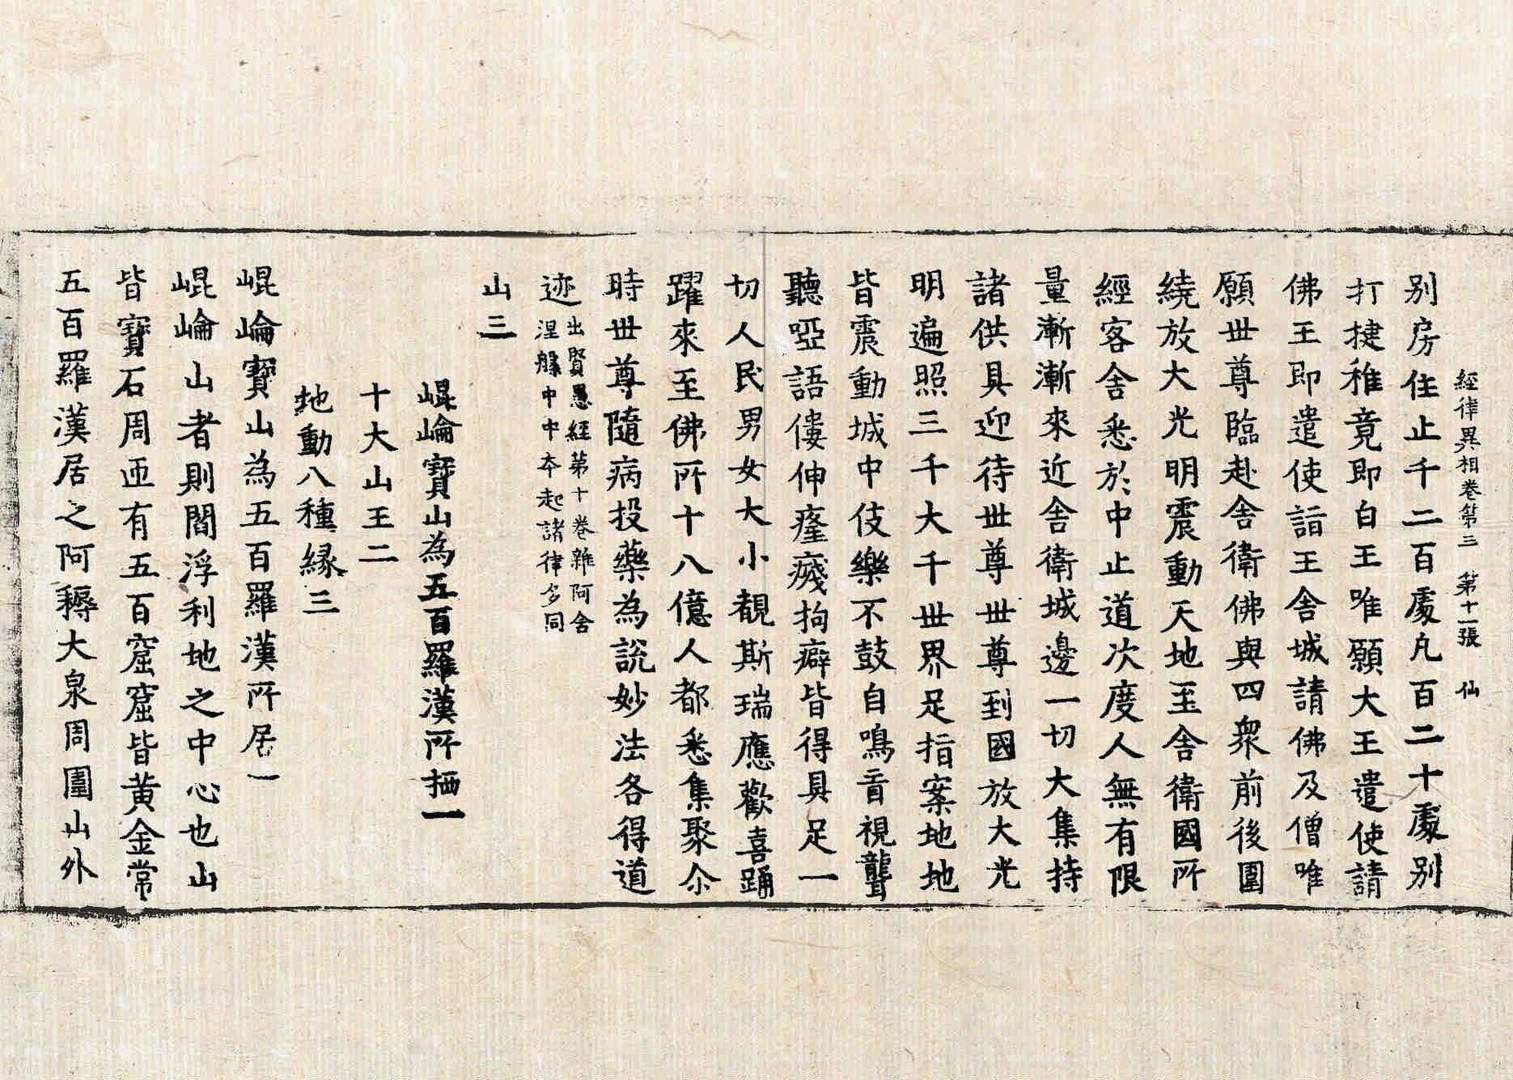 經律異相卷第三 第十一張 仙
別房住止千二百處凡百二十處別
打揵稚竟即白王唯願大王遣使請
佛王即遣使詣王舍城請佛及僧唯
願世尊臨赴舍衛佛與四衆前後圍
繞放大光明震動天地至舍衛國所
經客舍悉於中止道次度人無有限
量漸漸來近舍衛城邊一切大集持
諸供具迎待世尊世尊到國放大光
明遍照三千大千世界足指案地地
皆震動城中伎樂不鼓自鳴盲視聾
聽啞語僂伸癃殘拘癖皆得具足一
切人民男女大小覩斯瑞應歡喜踊
躍來至佛所十八億人都悉集聚尒
時世尊隨病投藥為說妙法各得道
迹出賢愚經第十卷雜阿舍
涅槃中中夲起諸律多同
山三
崐崘寶山為五百羅漢所栖一
十大山王二
地動八種緣三
崐崘寶山為五百羅漢所居一
崐崘山者則閻浮利地之中心也山
皆寶石周迊有五百窟窟皆黄金常
五百羅漢居之阿耨大泉周圍山外